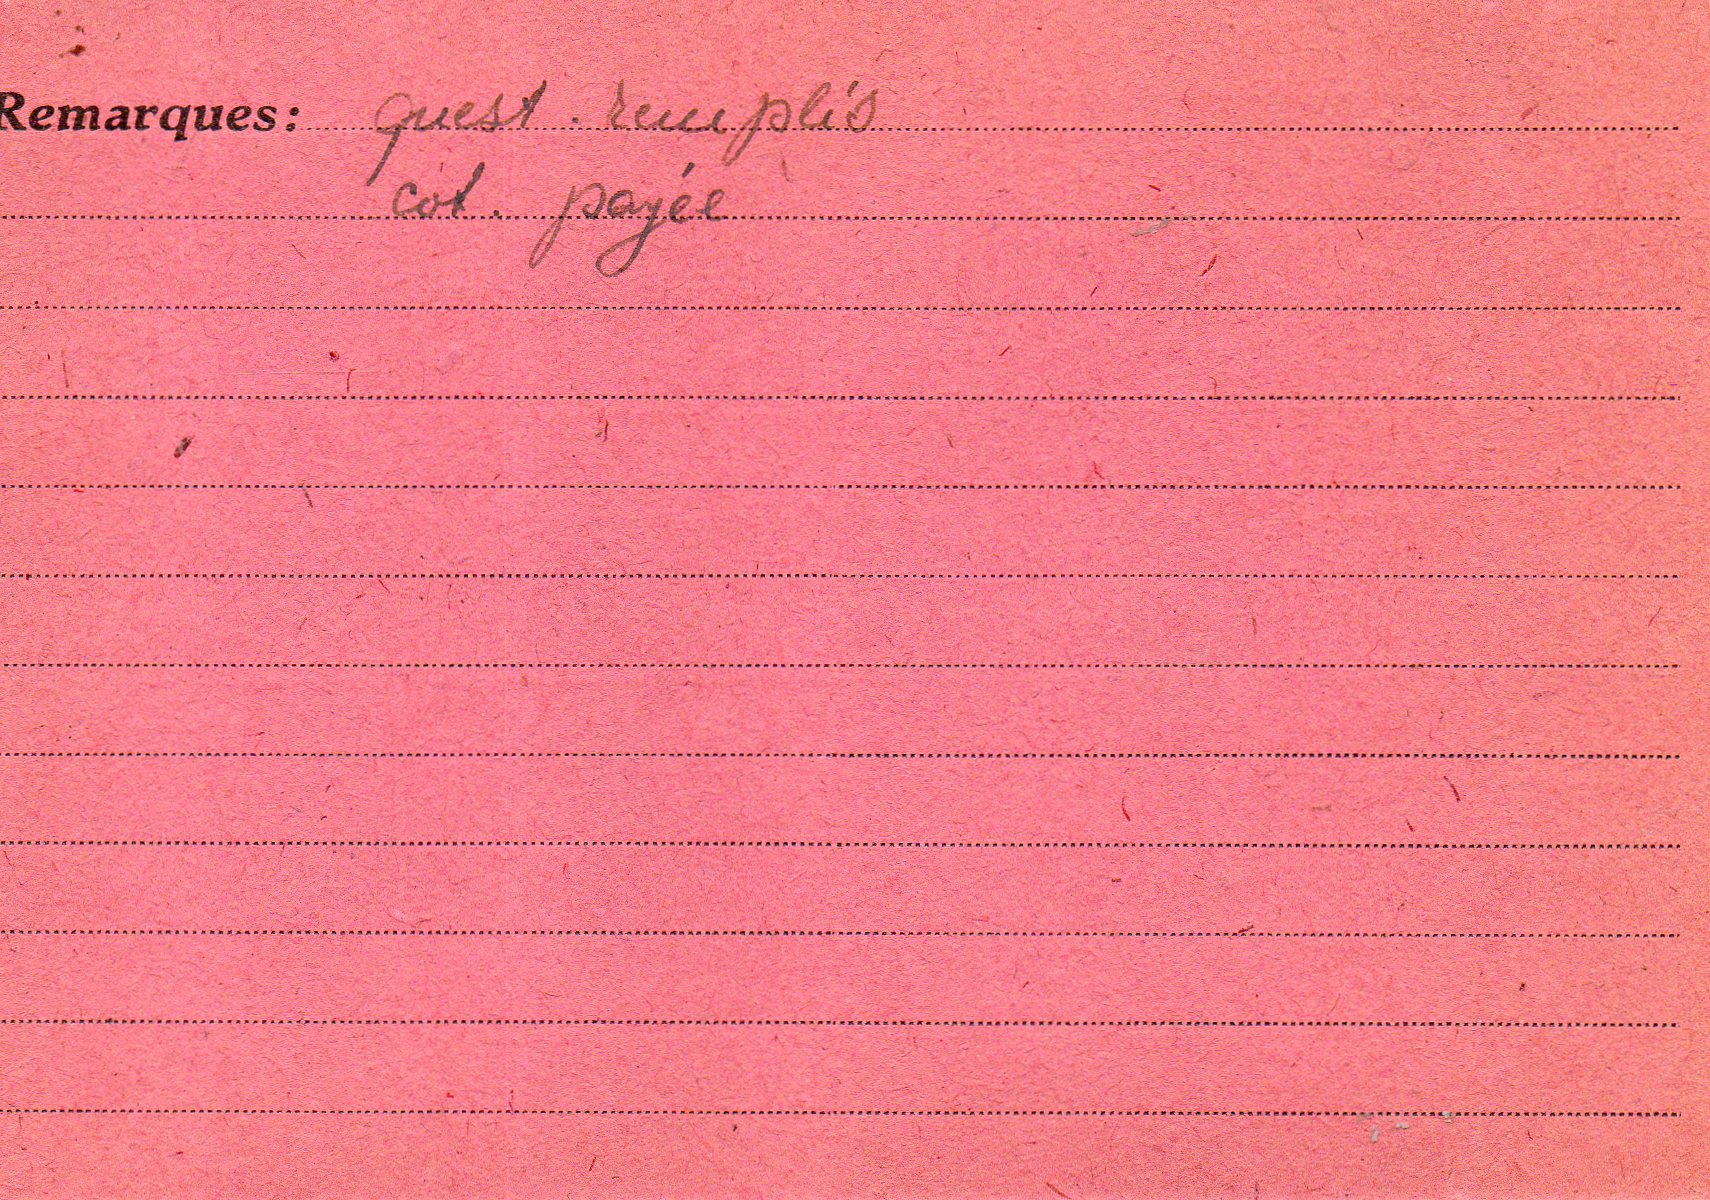 Remarques: quest. remplis
cot. payée